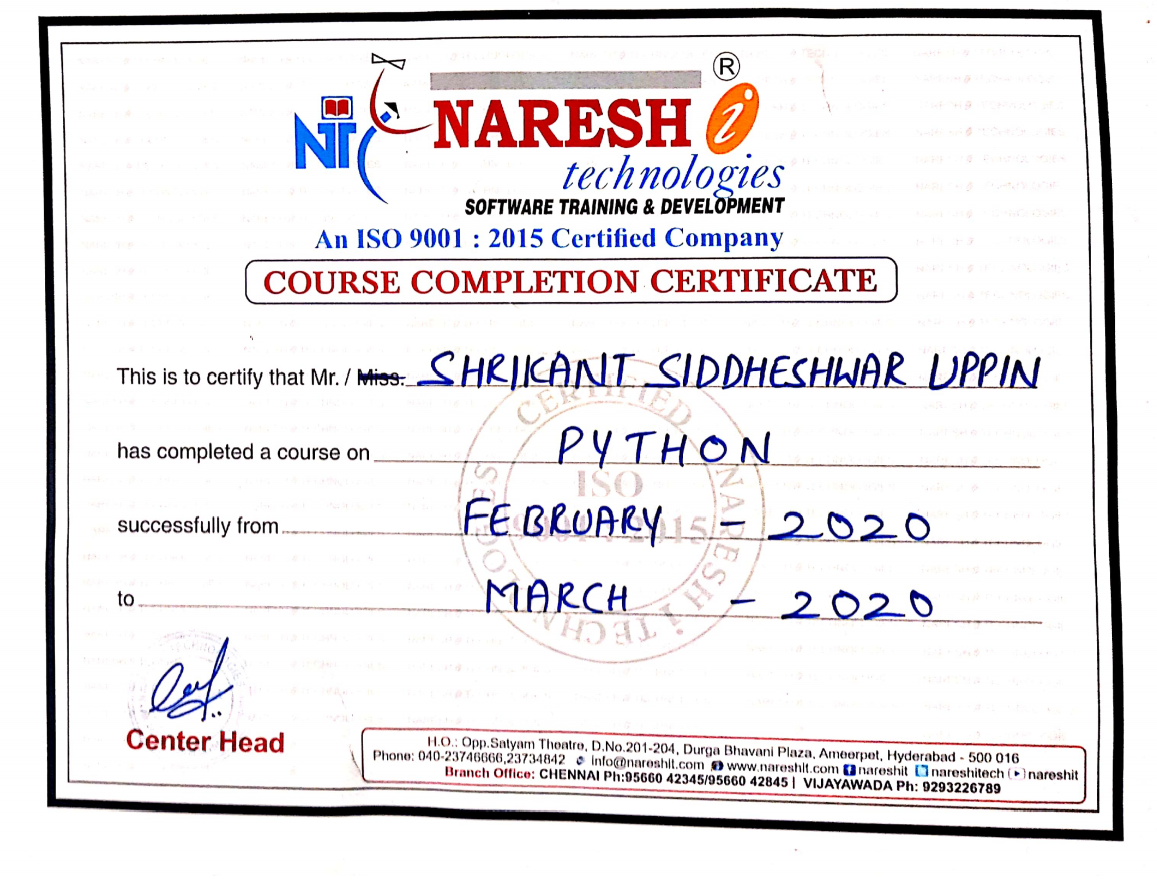 ®
NT
NARESH i
technologies
SOFTWARE TRAINING & DEVELOPMENT
An ISO 9001 : 2015 Certified Company
COURSE COMPLETION CERTIFICATE
This is to certify that Mr. / Miss. SHRIKANT SIDDHESHWAR UPPIN
has completed a course on PYTHON
successfully from FEBRUARY - 2020
to MARCH - 2020
CERTIFIED NARESH i TECHNOLOGIES
ISO
9001 : 2015
Center Head
H.O.: Opp.Satyam Theatre, D.No.201-204, Durga Bhavani Plaza, Ameerpet, Hyderabad - 500 016
Phone: 040-23746666,23734842 info@nareshit.com www.nareshit.com nareshit nareshitech nareshit
Branch Office: CHENNAI Ph:95660 42345/95660 42845 | VIJAYAWADA Ph: 9293226789